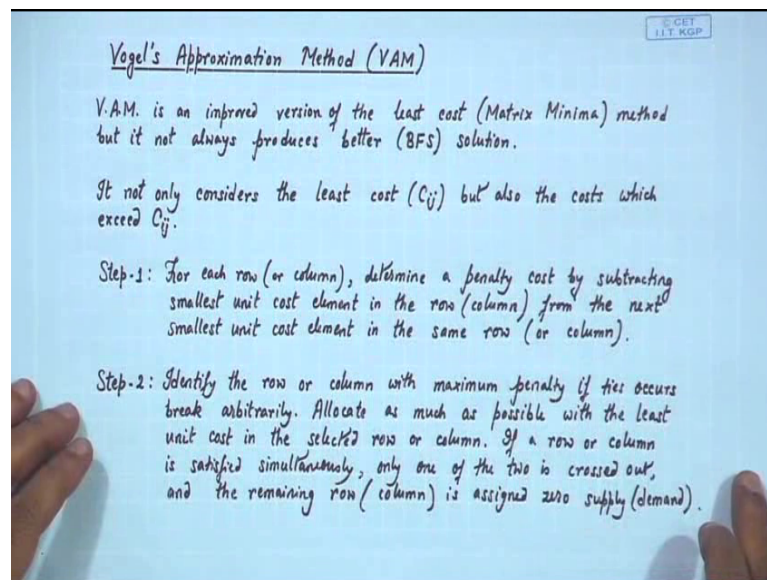 © CET
I.I.T. KGP
Vogel's Approximation Method (VAM)
V.A.M. is an improved version of the least cost (Matrix Minima) method
but it not always produces better (BFS) solution.
It not only considers the least cost (Cij) but also the costs which
exceed Cij.
Step-1: For each row (or column), determine a penalty cost by subtracting
smallest unit cost element in the row (column) from the next
smallest unit cost element in the same row (or column).
Step-2: Identify the row or column with maximum penalty if ties occurs
break arbitrarily. Allocate as much as possible with the least
unit cost in the selected row or column. If a row or column
is satisfied simultaneously, only one of the two is crossed out,
and the remaining row (column) is assigned zero supply (demand).